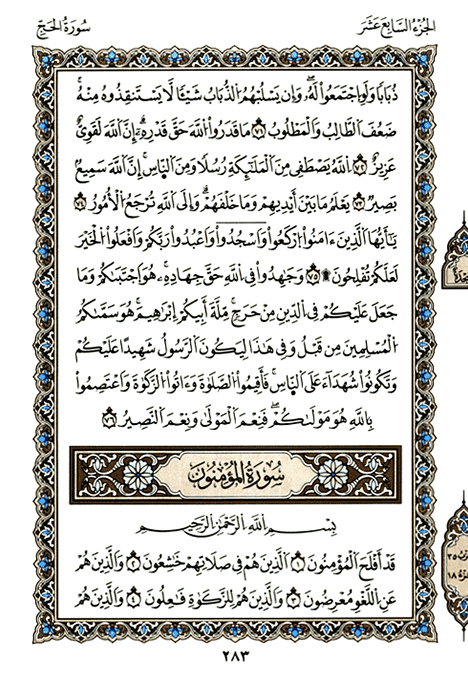 الجُزْءُ السَّابِعَ عَشَرَ
سُورَةُ الحَجِّ
ذُبَابًا وَلَوِ اِجْتَمَعُوا لَهُۥ وَإِن يَسْلُبْهُمُ الذُّبَابُ شَيْـًٔا لَّا يَسْتَنقِذُوهُ مِنْهُ
ضَعُفَ الطَّالِبُ وَالْمَطْلُوبُ ٧١ مَا قَدَرُوا اللَّهَ حَقَّ قَدْرِهِۦ إِنَّ اللَّهَ لَقَوِيٌّ
عَزِيزٌ ٧٢ اللَّهُ يَصْطَفِي مِنَ الْمَلَٰٓئِكَةِ رُسُلًا وَمِنَ النَّاسِ إِنَّ اللَّهَ سَمِيعٌ
بَصِيرٌ ٧٣ يَعْلَمُ مَا بَيْنَ أَيْدِيهِمْ وَمَا خَلْفَهُمْ وَإِلَى اللَّهِ تُرْجَعُ الْأُمُورُ ٧٤
يَٰٓأَيُّهَا الَّذِينَ ءَامَنُوا ارْكَعُوا وَاسْجُدُوا وَاعْبُدُوا رَبَّكُمْ وَافْعَلُوا الْخَيْرَ
لَعَلَّكُمْ تُفْلِحُونَ ۩ ٧٥ وَجَٰهِدُوا فِي اللَّهِ حَقَّ جِهَادِهِۦ هُوَ اجْتَبَىٰكُمْ وَمَا
جَعَلَ عَلَيْكُمْ فِي الدِّينِ مِنْ حَرَجٍ مِّلَّةَ أَبِيكُمْ إِبْرَٰهِيمَ هُوَ سَمَّىٰكُمُ
الْمُسْلِمِينَ مِن قَبْلُ وَفِي هَٰذَا لِيَكُونَ الرَّسُولُ شَهِيدًا عَلَيْكُمْ
وَتَكُونُوا شُهَدَآءَ عَلَى النَّاسِ فَأَقِيمُوا الصَّلَوٰةَ وَءَاتُوا الزَّكَوٰةَ وَاعْتَصِمُوا
بِاللَّهِ هُوَ مَوْلَىٰكُمْ فَنِعْمَ الْمَوْلَىٰ وَنِعْمَ النَّصِيرُ ٧٦
سُورَةُ المُؤْمِنُونَ
بِسْمِ اللَّهِ الرَّحْمَٰنِ الرَّحِيمِ
قَدْ أَفْلَحَ الْمُؤْمِنُونَ ١ الَّذِينَ هُمْ فِي صَلَاتِهِمْ خَٰشِعُونَ ٢ وَالَّذِينَ هُمْ
عَنِ اللَّغْوِ مُعْرِضُونَ ٣ وَالَّذِينَ هُمْ لِلزَّكَوٰةِ فَٰعِلُونَ ٤ وَالَّذِينَ هُمْ
٢٨٣